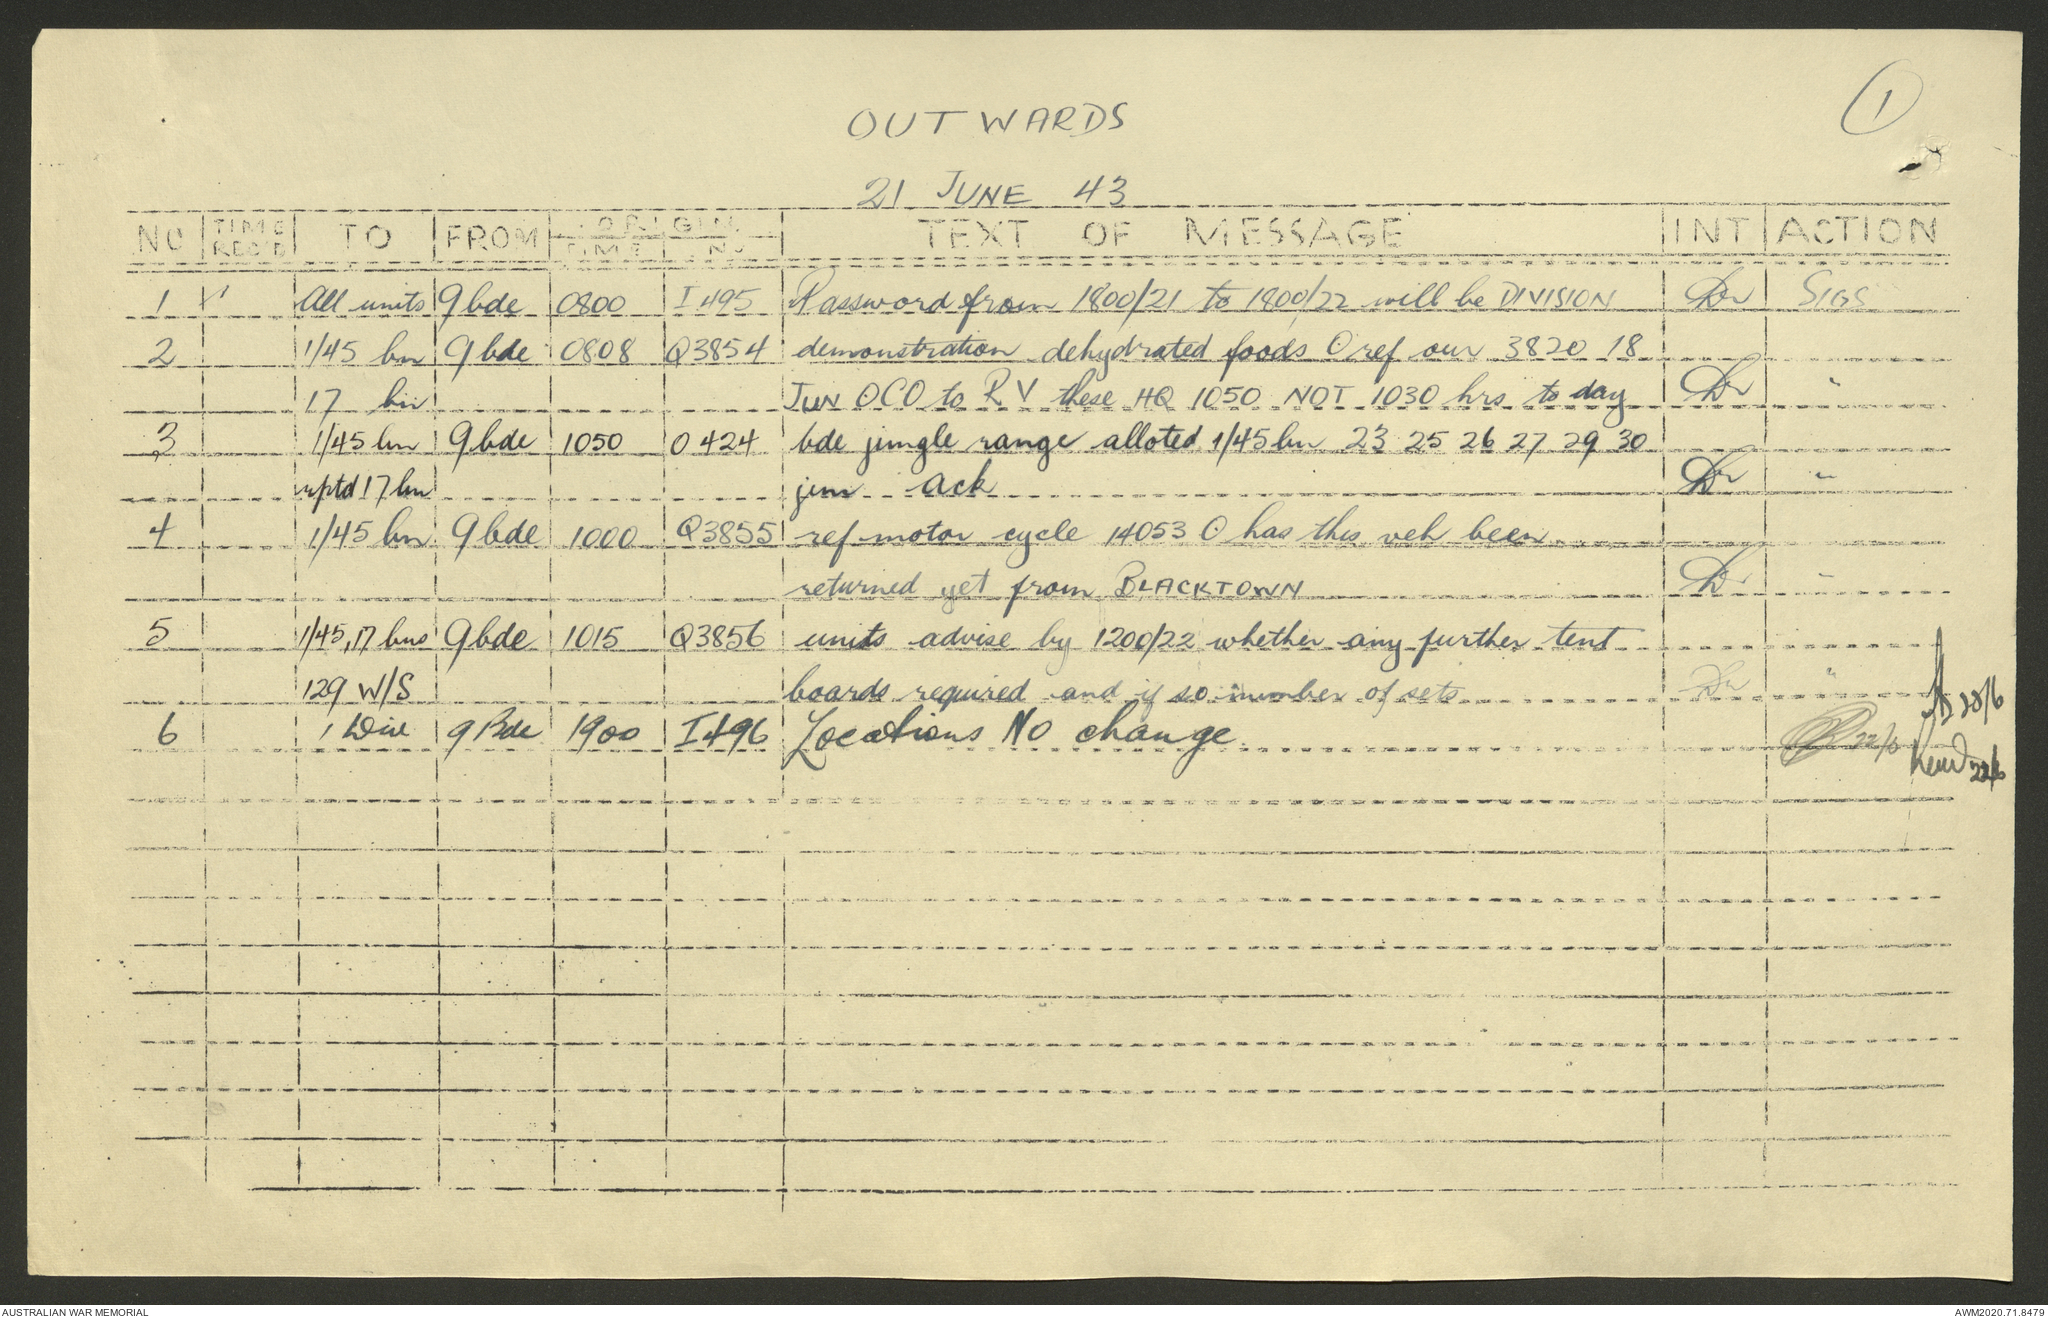 1
OUTWARDS
21 JUNE 43
NO TIME REC'D TO FROM ORIGIN TIME NO TEXT OF MESSAGE INT ACTION
1 All units 9 bde 0800 I 495 Password from 1800/21 to 1800/22 will be DIVISION SIGS
2 1/45 bn 9 bde 0808 Q3854 demonstration dehydrated foods O ref our 3820 18
17 bn JUN OCO to RV these HQ 1050 NOT 1030 hrs to day "
3 1/45 bn 9 bde 1050 O 424 bde jungle range alloted 1/45 bn 23 25 26 27 29 30
rptd 17 bn jun ack "
4 1/45 bn 9 bde 1000 Q3855 ref motor cycle 14053 O has this veh been
returned yet from BLACKTOWN "
5 1/45, 17 bns 9 bde 1015 Q3856 units advise by 1200/22 whether any further tent
129 W/S boards required and if so number of sets "
6 1 Div 9 Bde 1900 I496 Locations No change 22/6
22/6
AUSTRALIAN WAR MEMORIAL AWM2020.71.8479